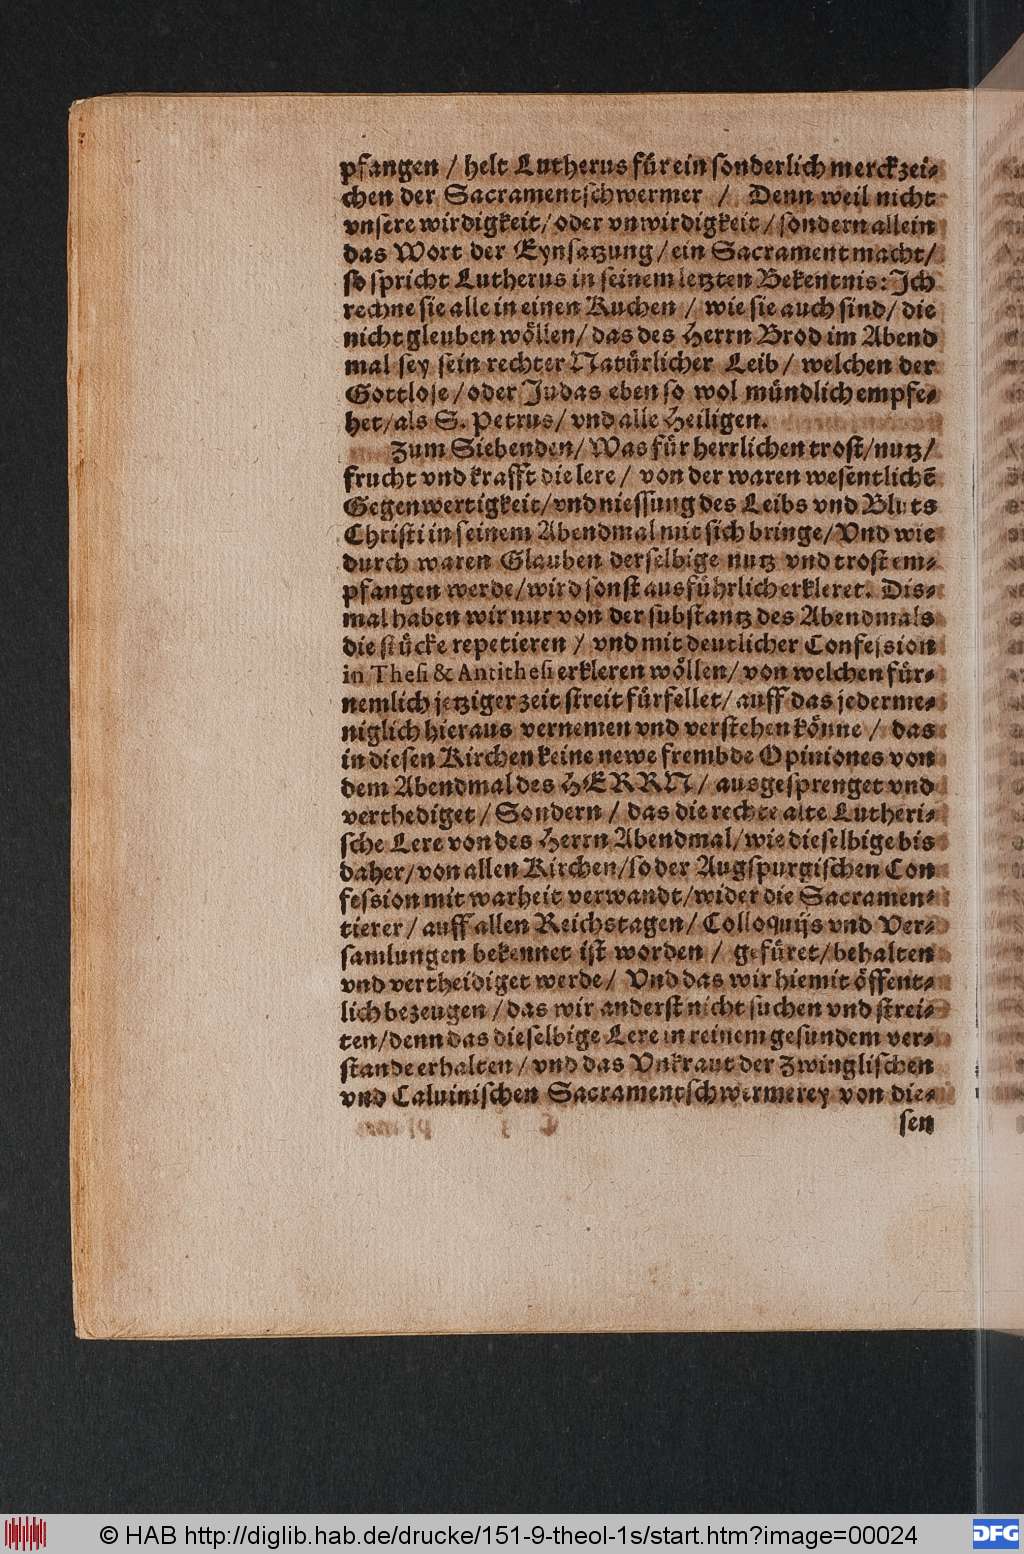 pfangen / helt Lutherus für ein ſonderlich merckzei-
chen der Sacramentſchwermer / Denn weil nicht
vnſere wirdigkeit / oder vnwirdigkeit / ſondern allein
das Wort der Eynſatzung / ein Sacrament macht /
ſo ſpricht Lutherus in ſeinem letzten Bekentnis: Ich
rechne ſie alle in einen Kuchen / wie ſie auch ſind / die
nicht gleuben wöllen / das des Herrn Brod im Abend
mal ſey ſein rechter Natürlicher Leib / welchen der
Gottloſe / oder Judas eben ſo wol mündlich empfe-
het / als S. Petrus / vnd alle Heiligen.
Zum Siebenden / Was für herrlichen troſt / nutz /
frucht vnd krafft die lere / von der waren weſentlichē
Gegenwertigkeit / vnd nieſſung des Leibs vnd Bluts
Chriſti in ſeinem Abendmal mit ſich bringe / Vnd wie
durch waren Glauben derſelbige nutz vnd troſt em-
pfangen werde / wird ſonſt ausführlich erkleret. Dis-
mal haben wir nur von der ſubſtantz des Abendmals
die ſtücke repetieren / vnd mit deutlicher Confeſsion
in Theſi & Antitheſi erkleren wöllen / von welchen für-
nemlich jetziger zeit ſtreit fürfellet / auff das jederme-
niglich hieraus vernemen vnd verſtehen könne / das
in dieſen Kirchen keine newe frembde Opiniones von
dem Abendmal des HERRN / ausgeſprenget vnd
verthediget / Sondern / das die rechte alte Lutheri-
ſche Lere von des Herrn Abendmal / wie dieſelbige bis
daher / von allen Kirchen / ſo der Augſpurgiſchen Con
feſsion mit warheit verwandt / wider die Sacramen-
tierer / auff allen Reichstagen / Colloquijs vnd Ver-
ſamlungen bekennet iſt worden / gefüret / behalten
vnd vertheidiget werde / Vnd das wir hiemit öffent-
lich bezeugen / das wir anderſt nicht ſuchen vnd ſtrei-
ten / denn das dieſelbige Lere in reinem geſundem ver-
ſtande erhalten / vnd das Vnkraut der Zwingliſchen
vnd Caluiniſchen Sacramentſchwermerey von die-
ſen
© HAB http://diglib.hab.de/drucke/151-9-theol-1s/start.htm?image=00024
DFG